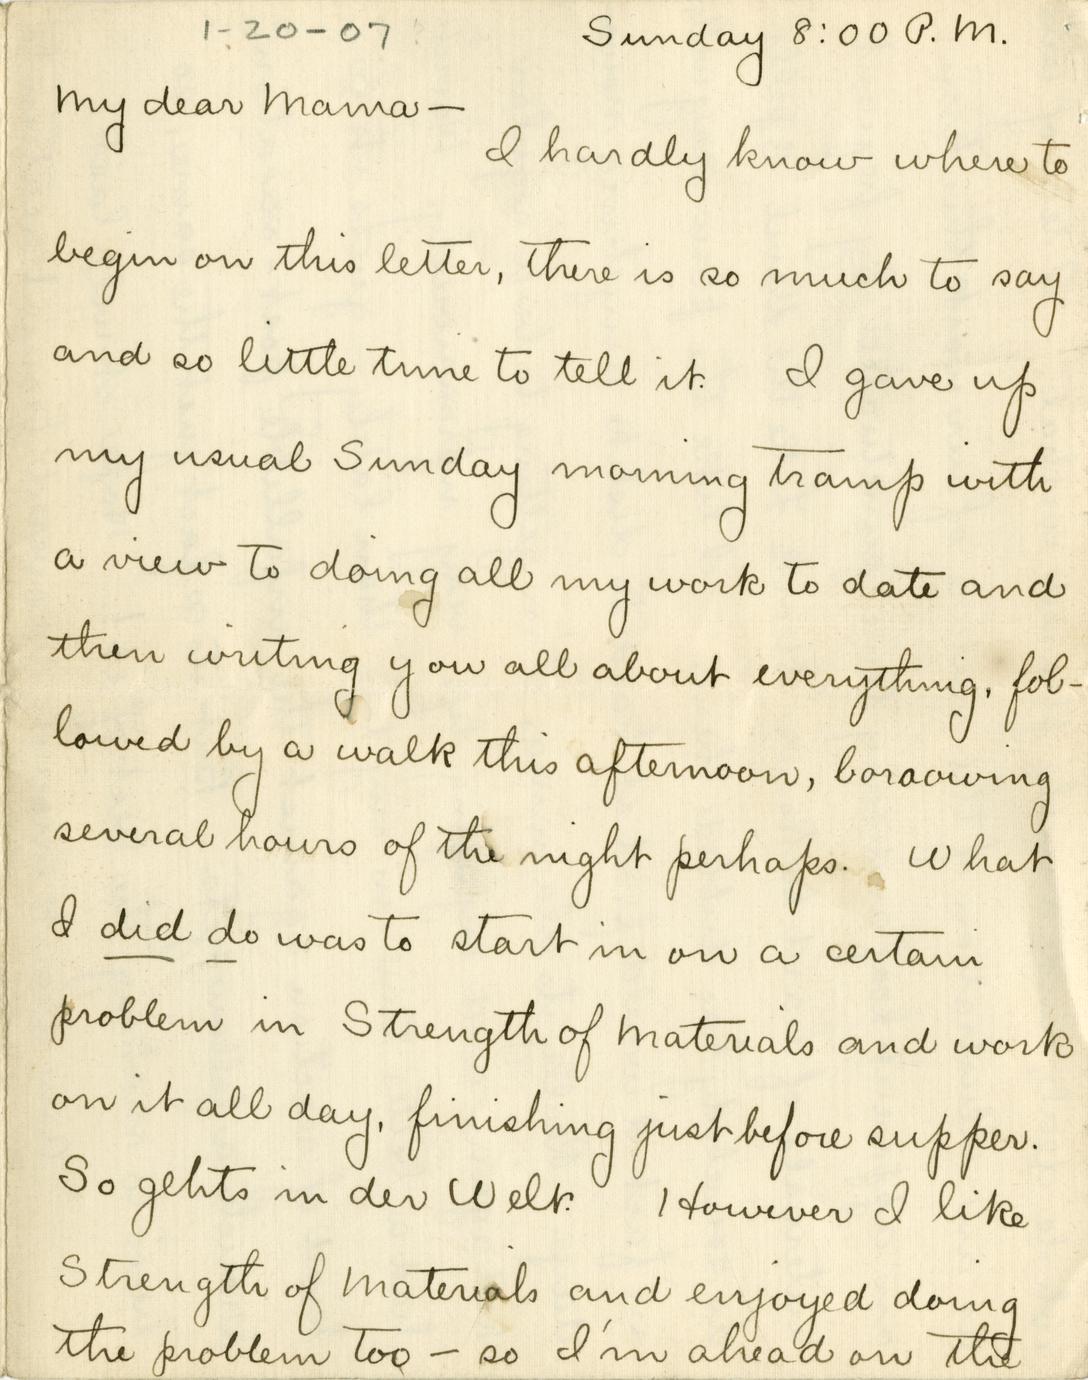 1-20-07
Sunday 8:00 P.M.
My dear Mama—
I hardly know where to
begin on this letter, there is so much to say
and so little time to tell it. I gave up
my usual Sunday morning tramp with
a view to doing all my work to date and
then writing you all about everything, fol-
lowed by a walk this afternoon, borrowing
several hours of the night perhaps. What
I did do was to start in on a certain
problem in Strength of Materials and work
on it all day, finishing just before supper.
So gehts in der Welt. However I like
Strength of Materials and enjoyed doing
the problem too — so I'm ahead on the